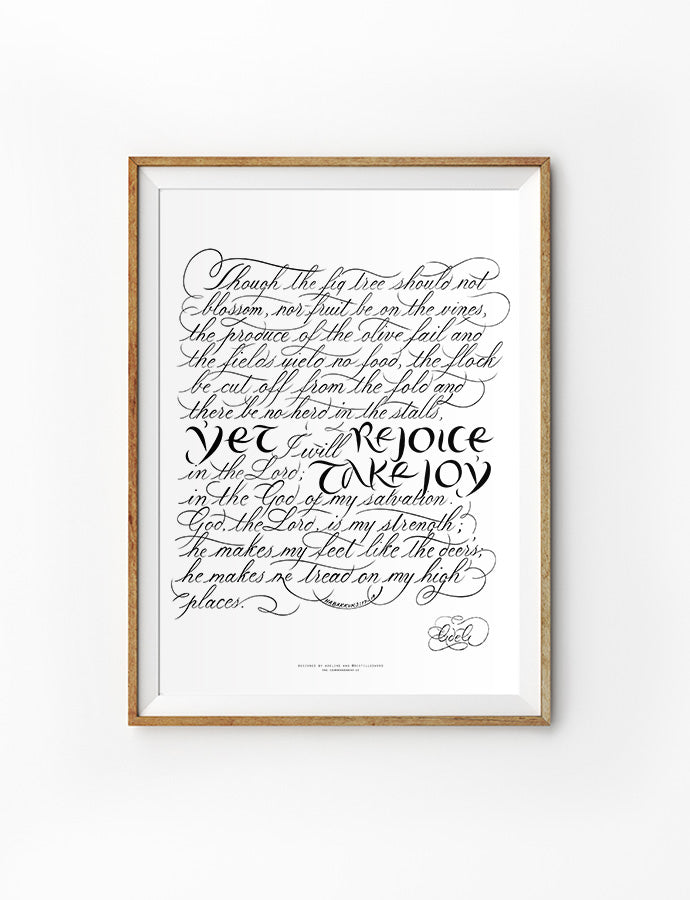 Though the fig tree should not
blossom, nor fruit be on the vines,
the produce of the olive fail and
the fields yield no food, the flock
be cut off from the fold and
there be no herd in the stalls,
yet I will REJOICE
in the Lord; TAKE JOY
in the God of my salvation.
God, the Lord, is my strength;
he makes my feet like the deer's;
he makes me tread on my high
places.